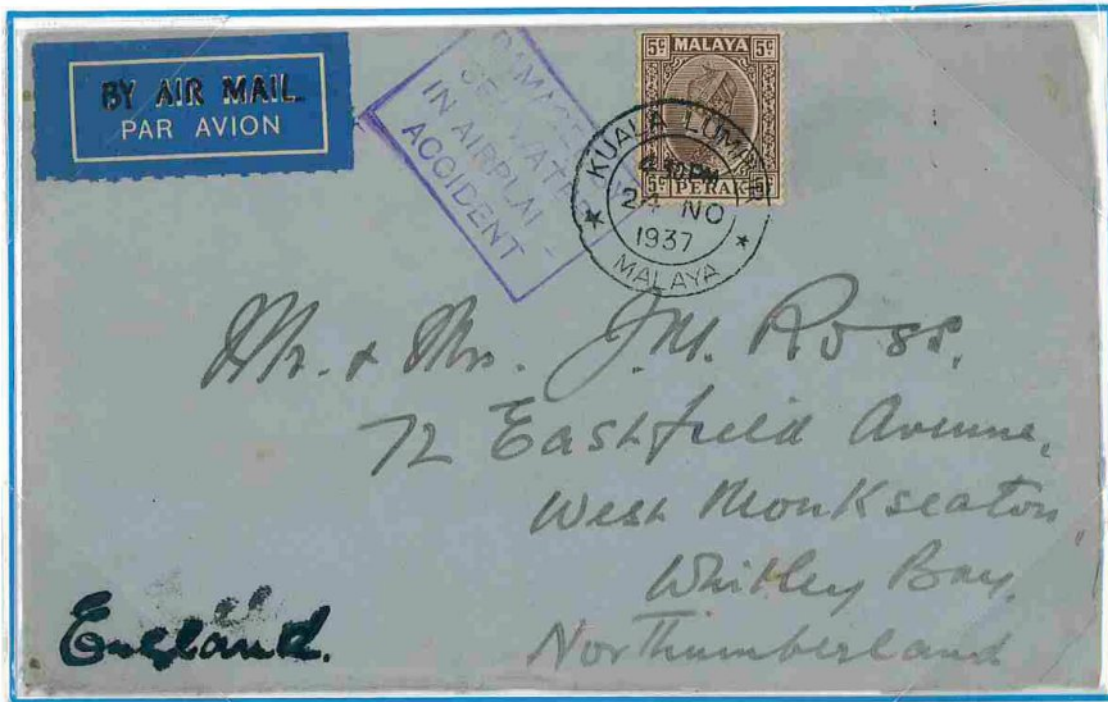 BY AIR MAIL
PAR AVION
DAMAGED
SEA WATER
IN AIRPLANE
ACCIDENT
5c MALAYA 5c
5c PERAK 5c
KUALA LUMPUR
4.30 PM
24 NO
1937
MALAYA
Mr. & Mrs. J.M. Ross.
72 Eastfield Avenue,
West Monkseaton,
Whitley Bay.
Northumberland
England.